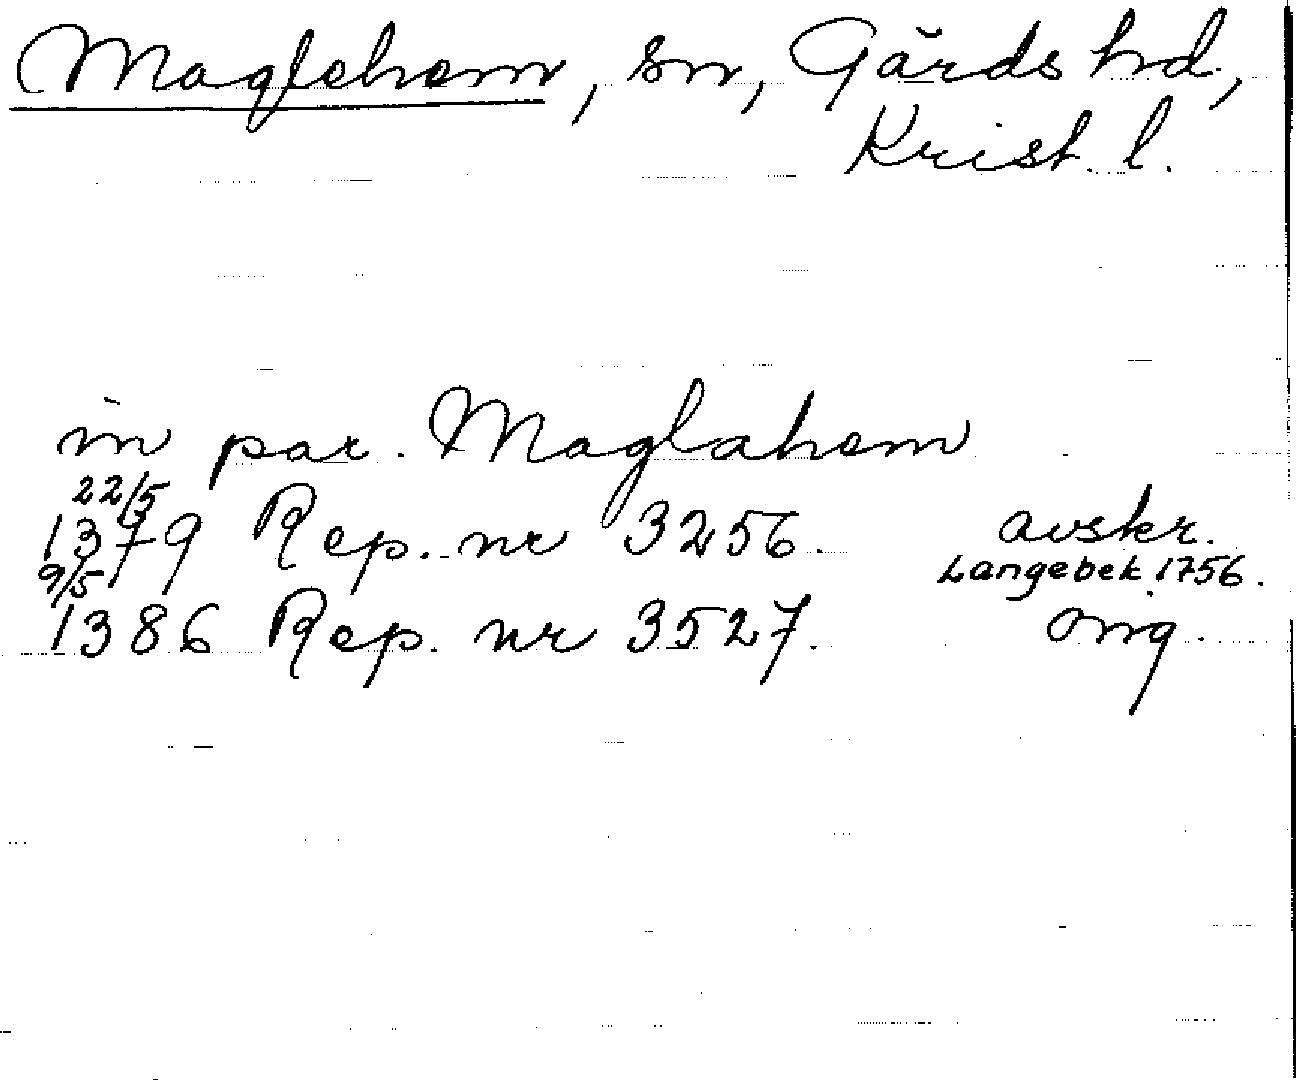 Maglehem, sn, Gärds hd.,
Krist. l.
in par. Maglahem
22/5
1379 Rep. nr 3256. avskr.
Langebek 1756.
9/5
1386 Rep. nr 3527. orig.